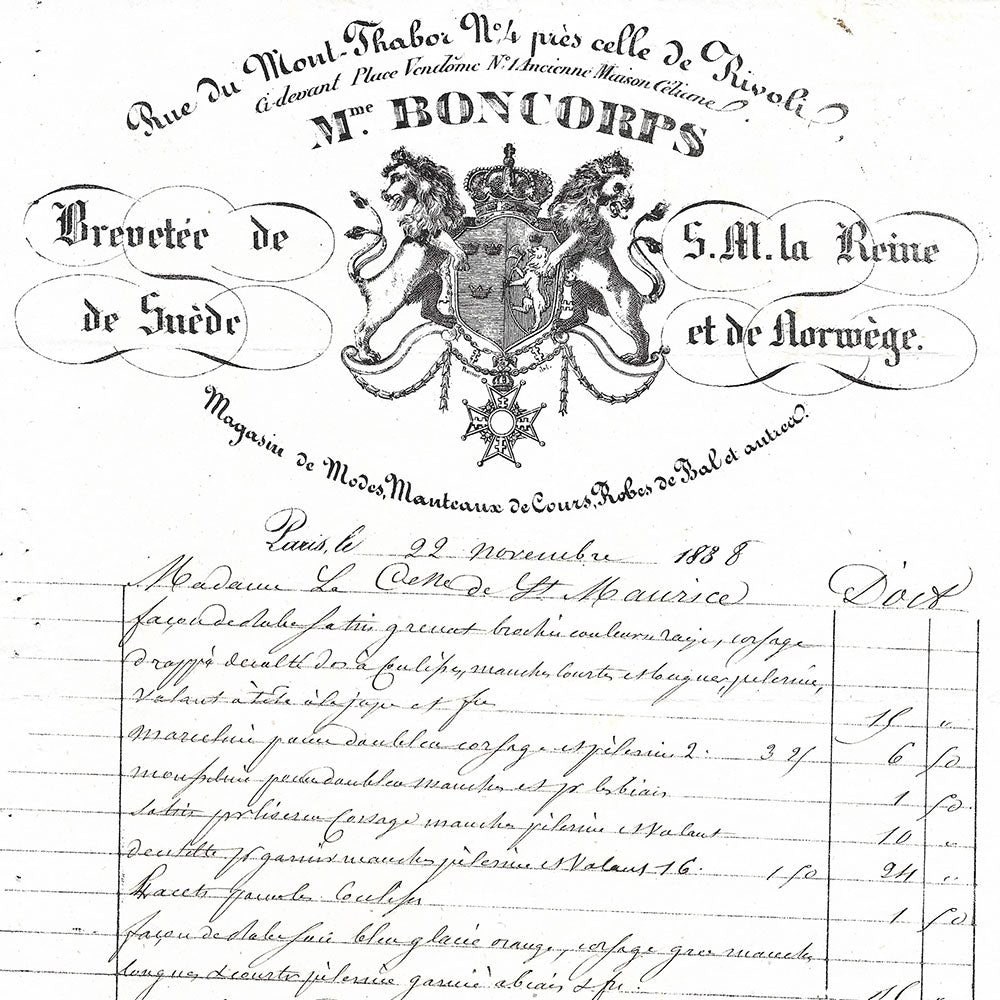 Rue du Mont-Thabor N°.4 près celle de Rivoli,
Ci-devant Place Vendôme N°.1 Ancienne Maison Céliane.
Mme. BONCORPS
Brevetée de S.M. la Reine
de Suède et de Norwège.
Magasin de Modes, Manteaux de Cours, Robes de Bal et autres.
Paris, le 22 novembre 1838
Madame La Ctesse de St Maurice Doit
façon de Robe satin grenat broché couleurs raye, corsage
drappé decolté dos à Coulisse, manches Courtes et longues, pelerine,
volant à tête à la jupe et fre 15 "
marceline pour doubler corsage et pelerine 2. 3 25 6 50
mousseline pour doubler manches et pr les biais 1 50
satin pr liserer Corsage manches pelerine et volant 10 "
dentelle pr garnir manches pelerine et volant 16. 1 50 24 "
Lacets pour les Coulisses 1 50
façon de Robe soie bleu glacée orange, corsage grec manches
longues & courtes pelerine garnie à biais & fre. 15